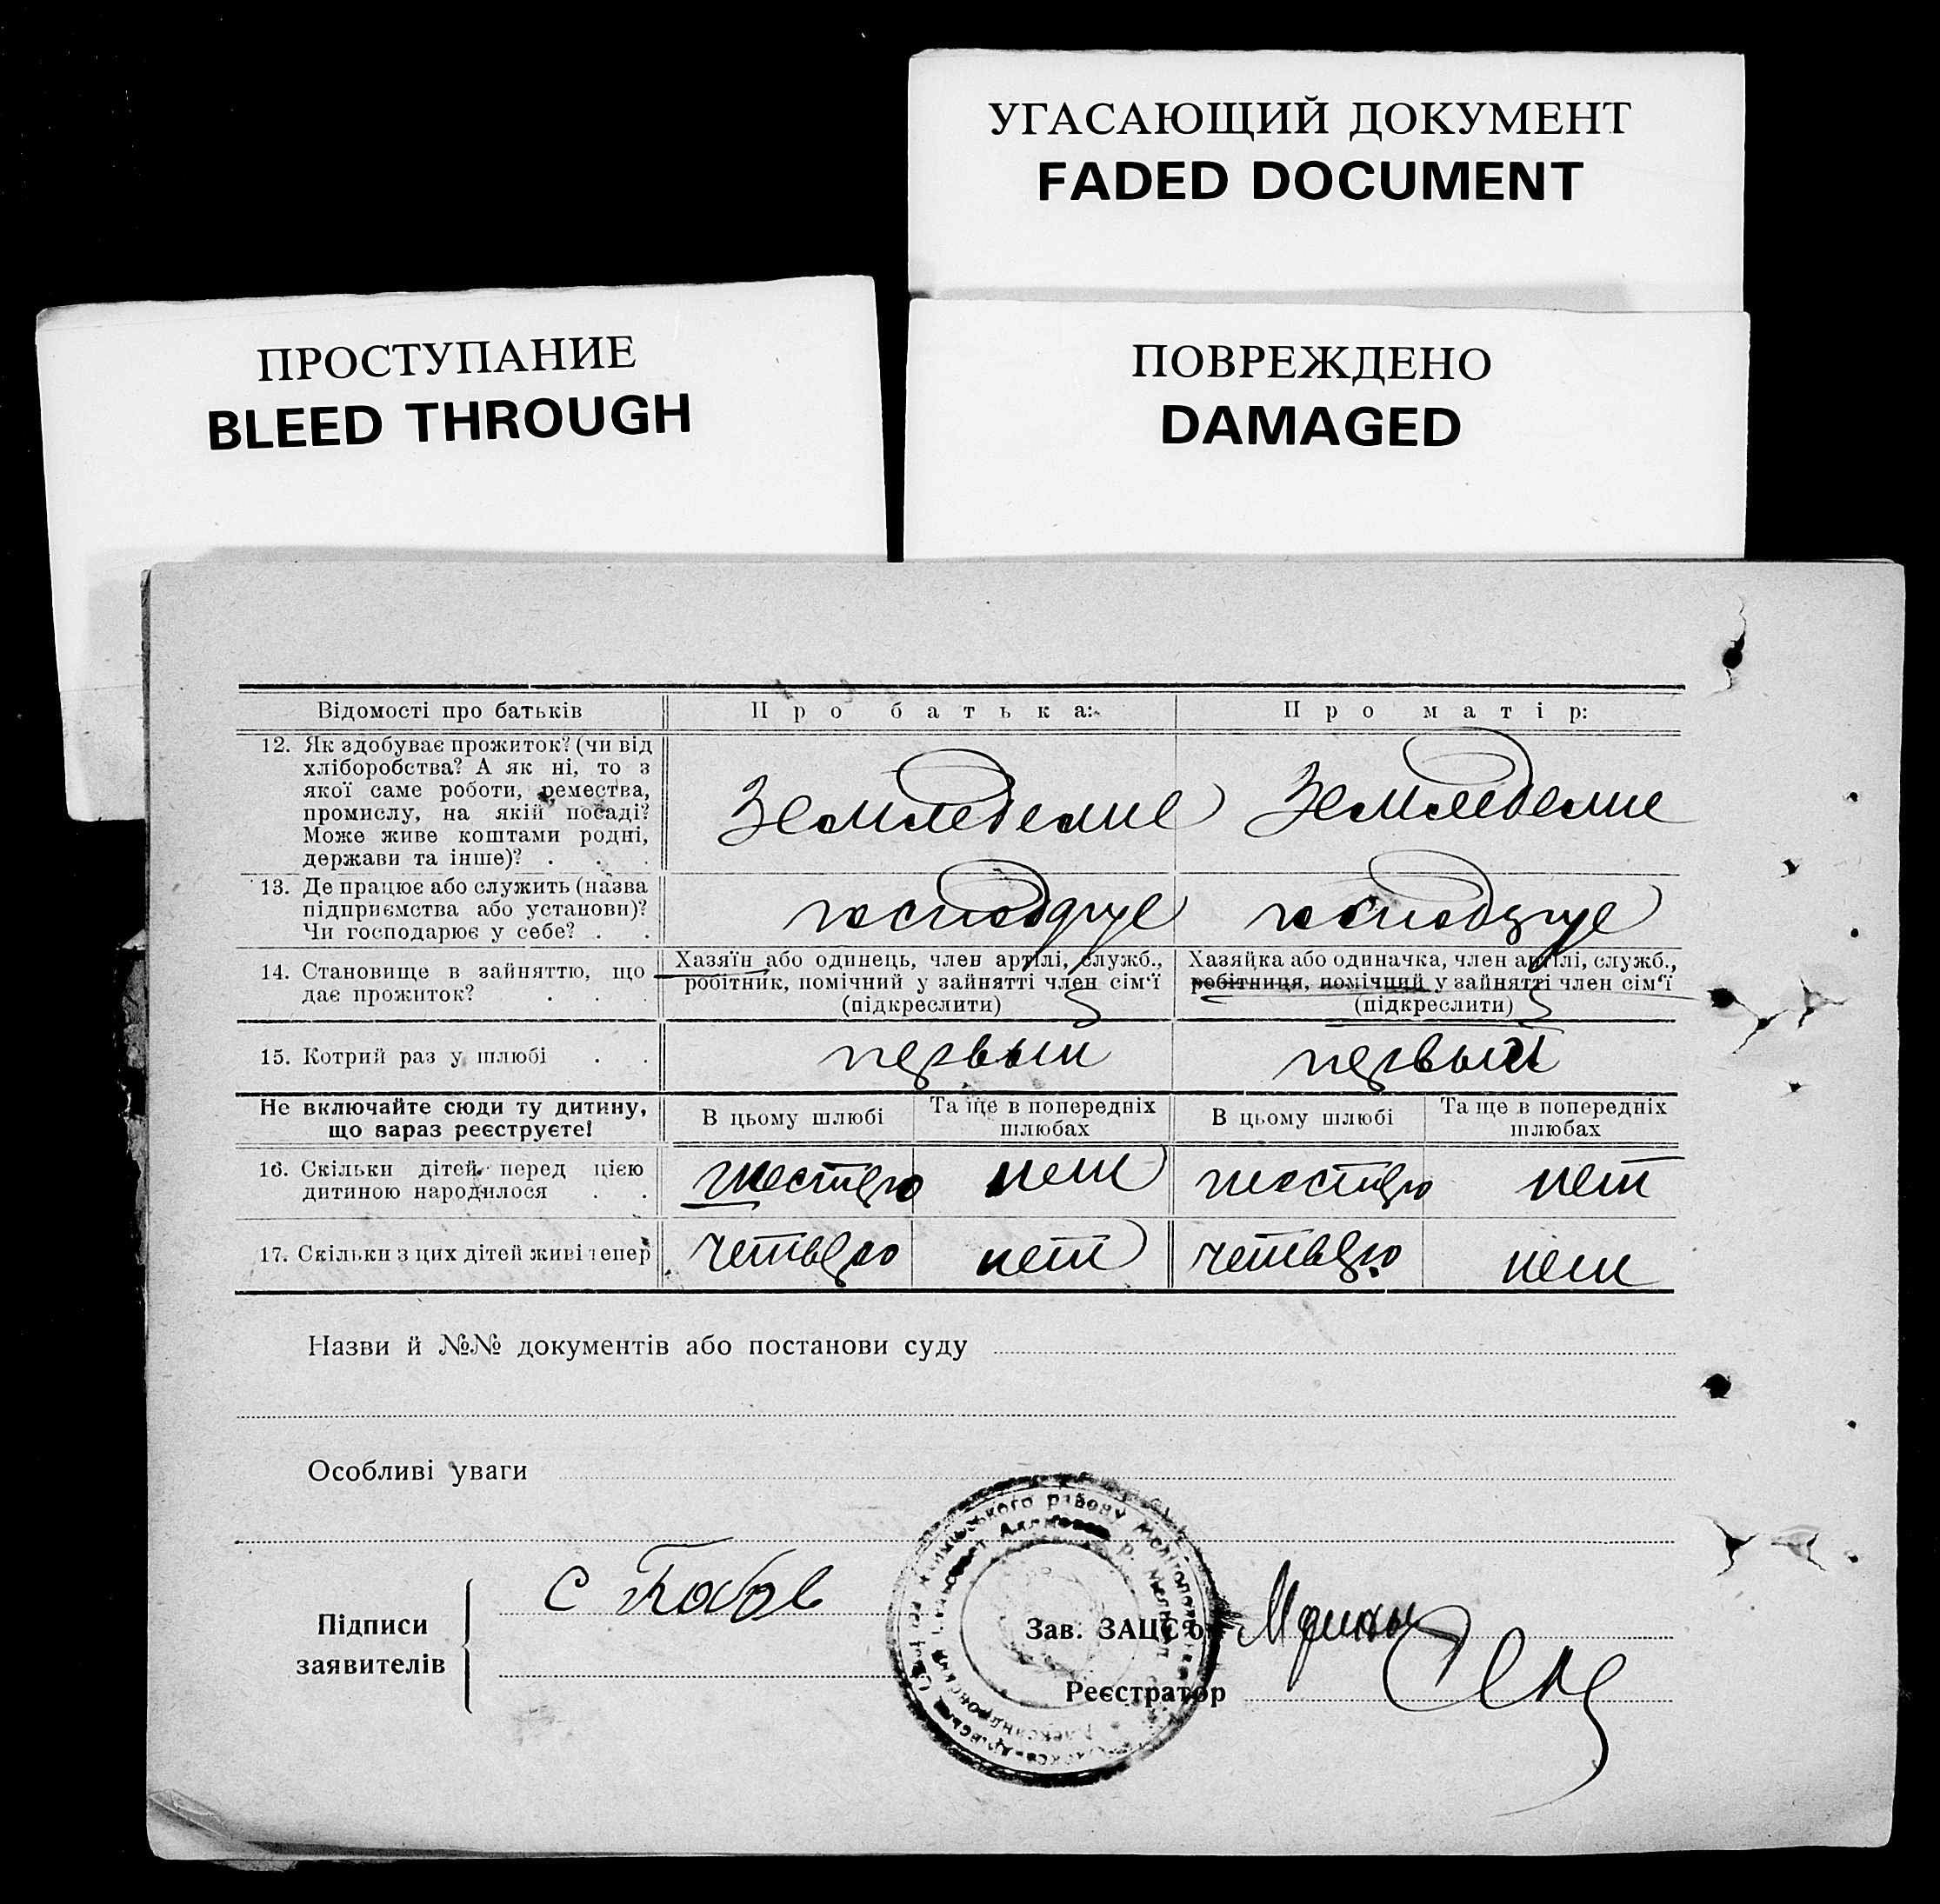 УГАСАЮЩИЙ ДОКУМЕНТ
FADED DOCUMENT
ПРОСТУПАНИЕ
BLEED THROUGH
ПОВРЕЖДЕНО
DAMAGED
Відомості про батьків
Про батька:
Про матір:
12. Як здобуває прожиток? (чи від
хліборобства? А як ні, то з
якої саме роботи, ремества,
промислу, на якій посаді?
Може живе коштами родні,
держави та інше)? . . .
Земледелие
Земледелие
13. Де працює або служить (назва
підприємства або установи)?
Чи господарює у себе? . .
14. Становище в зайняттю, що
дає прожиток? . . .
Хазяїн або одинець, член артілі, служб.,
робітник, помічний у зайнятті член сім'ї
(підкреслити)
Хазяйка або одиначка, член артілі, служб.,
робітниця, помічний у зайнятті член сім'ї
(підкреслити)
15. Котрий раз у шлюбі . .
первый
первый
Не включайте сюди ту дитину,
що зараз реєструєте!
В цьому шлюбі
Та ще в попередніх
шлюбах
В цьому шлюбі
Та ще в попередніх
шлюбах
16. Скільки дітей перед цією
дитиною народилося . .
шестеро
нет
шестеро
нет
17. Скільки з цих дітей живі тепер
четверо
нет
четверо
нет
Назви й №№ документів або постанови суду
Особливі уваги
Підписи
заявителів
Зав. ЗАЦС'ом
Реєстратор